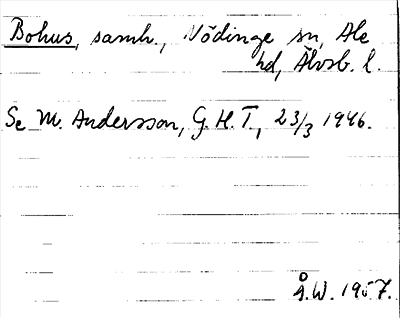 Bohus, samh., Nödinge sn, Ale
hd, Älvsb. l.
Se M. Andersson, G. H. T., 23/3 1946.
Å.W. 1957.